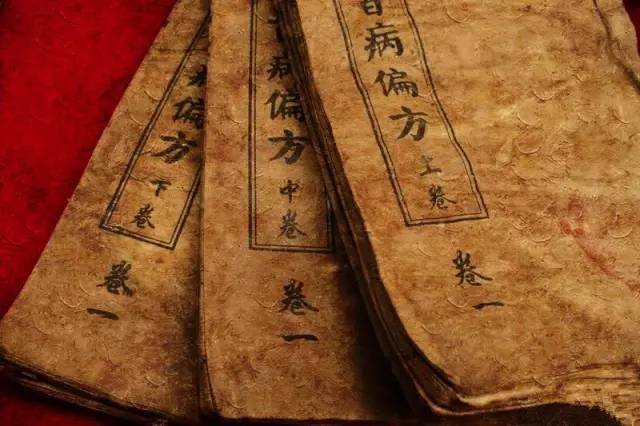 病偏方
上卷
卷一
病偏方
中卷
卷一
病偏方
下卷
卷一